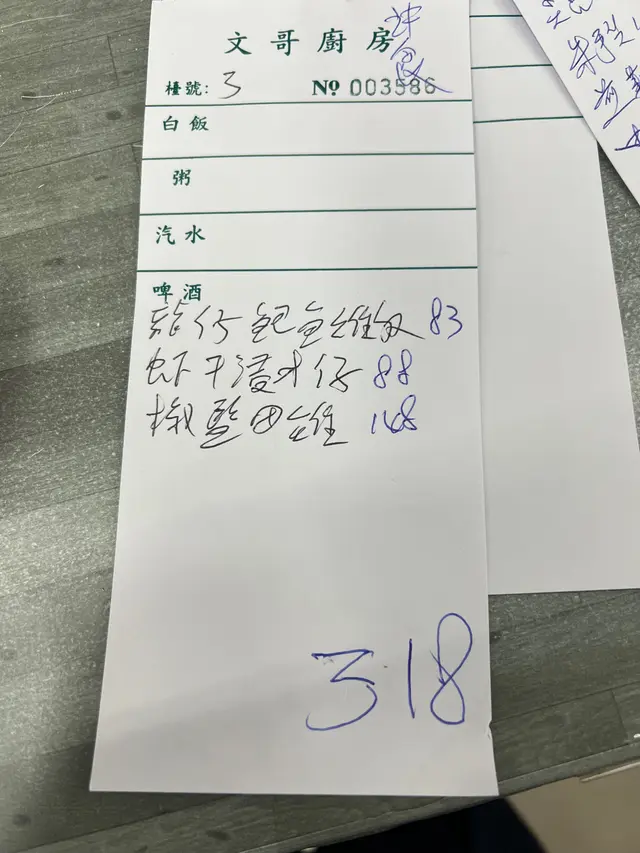 文哥廚房
檯號: 3 № 003586
白飯
粥
汽水
啤酒
仔 83
虾干浸才仔 88
椒盐田雞 148
318